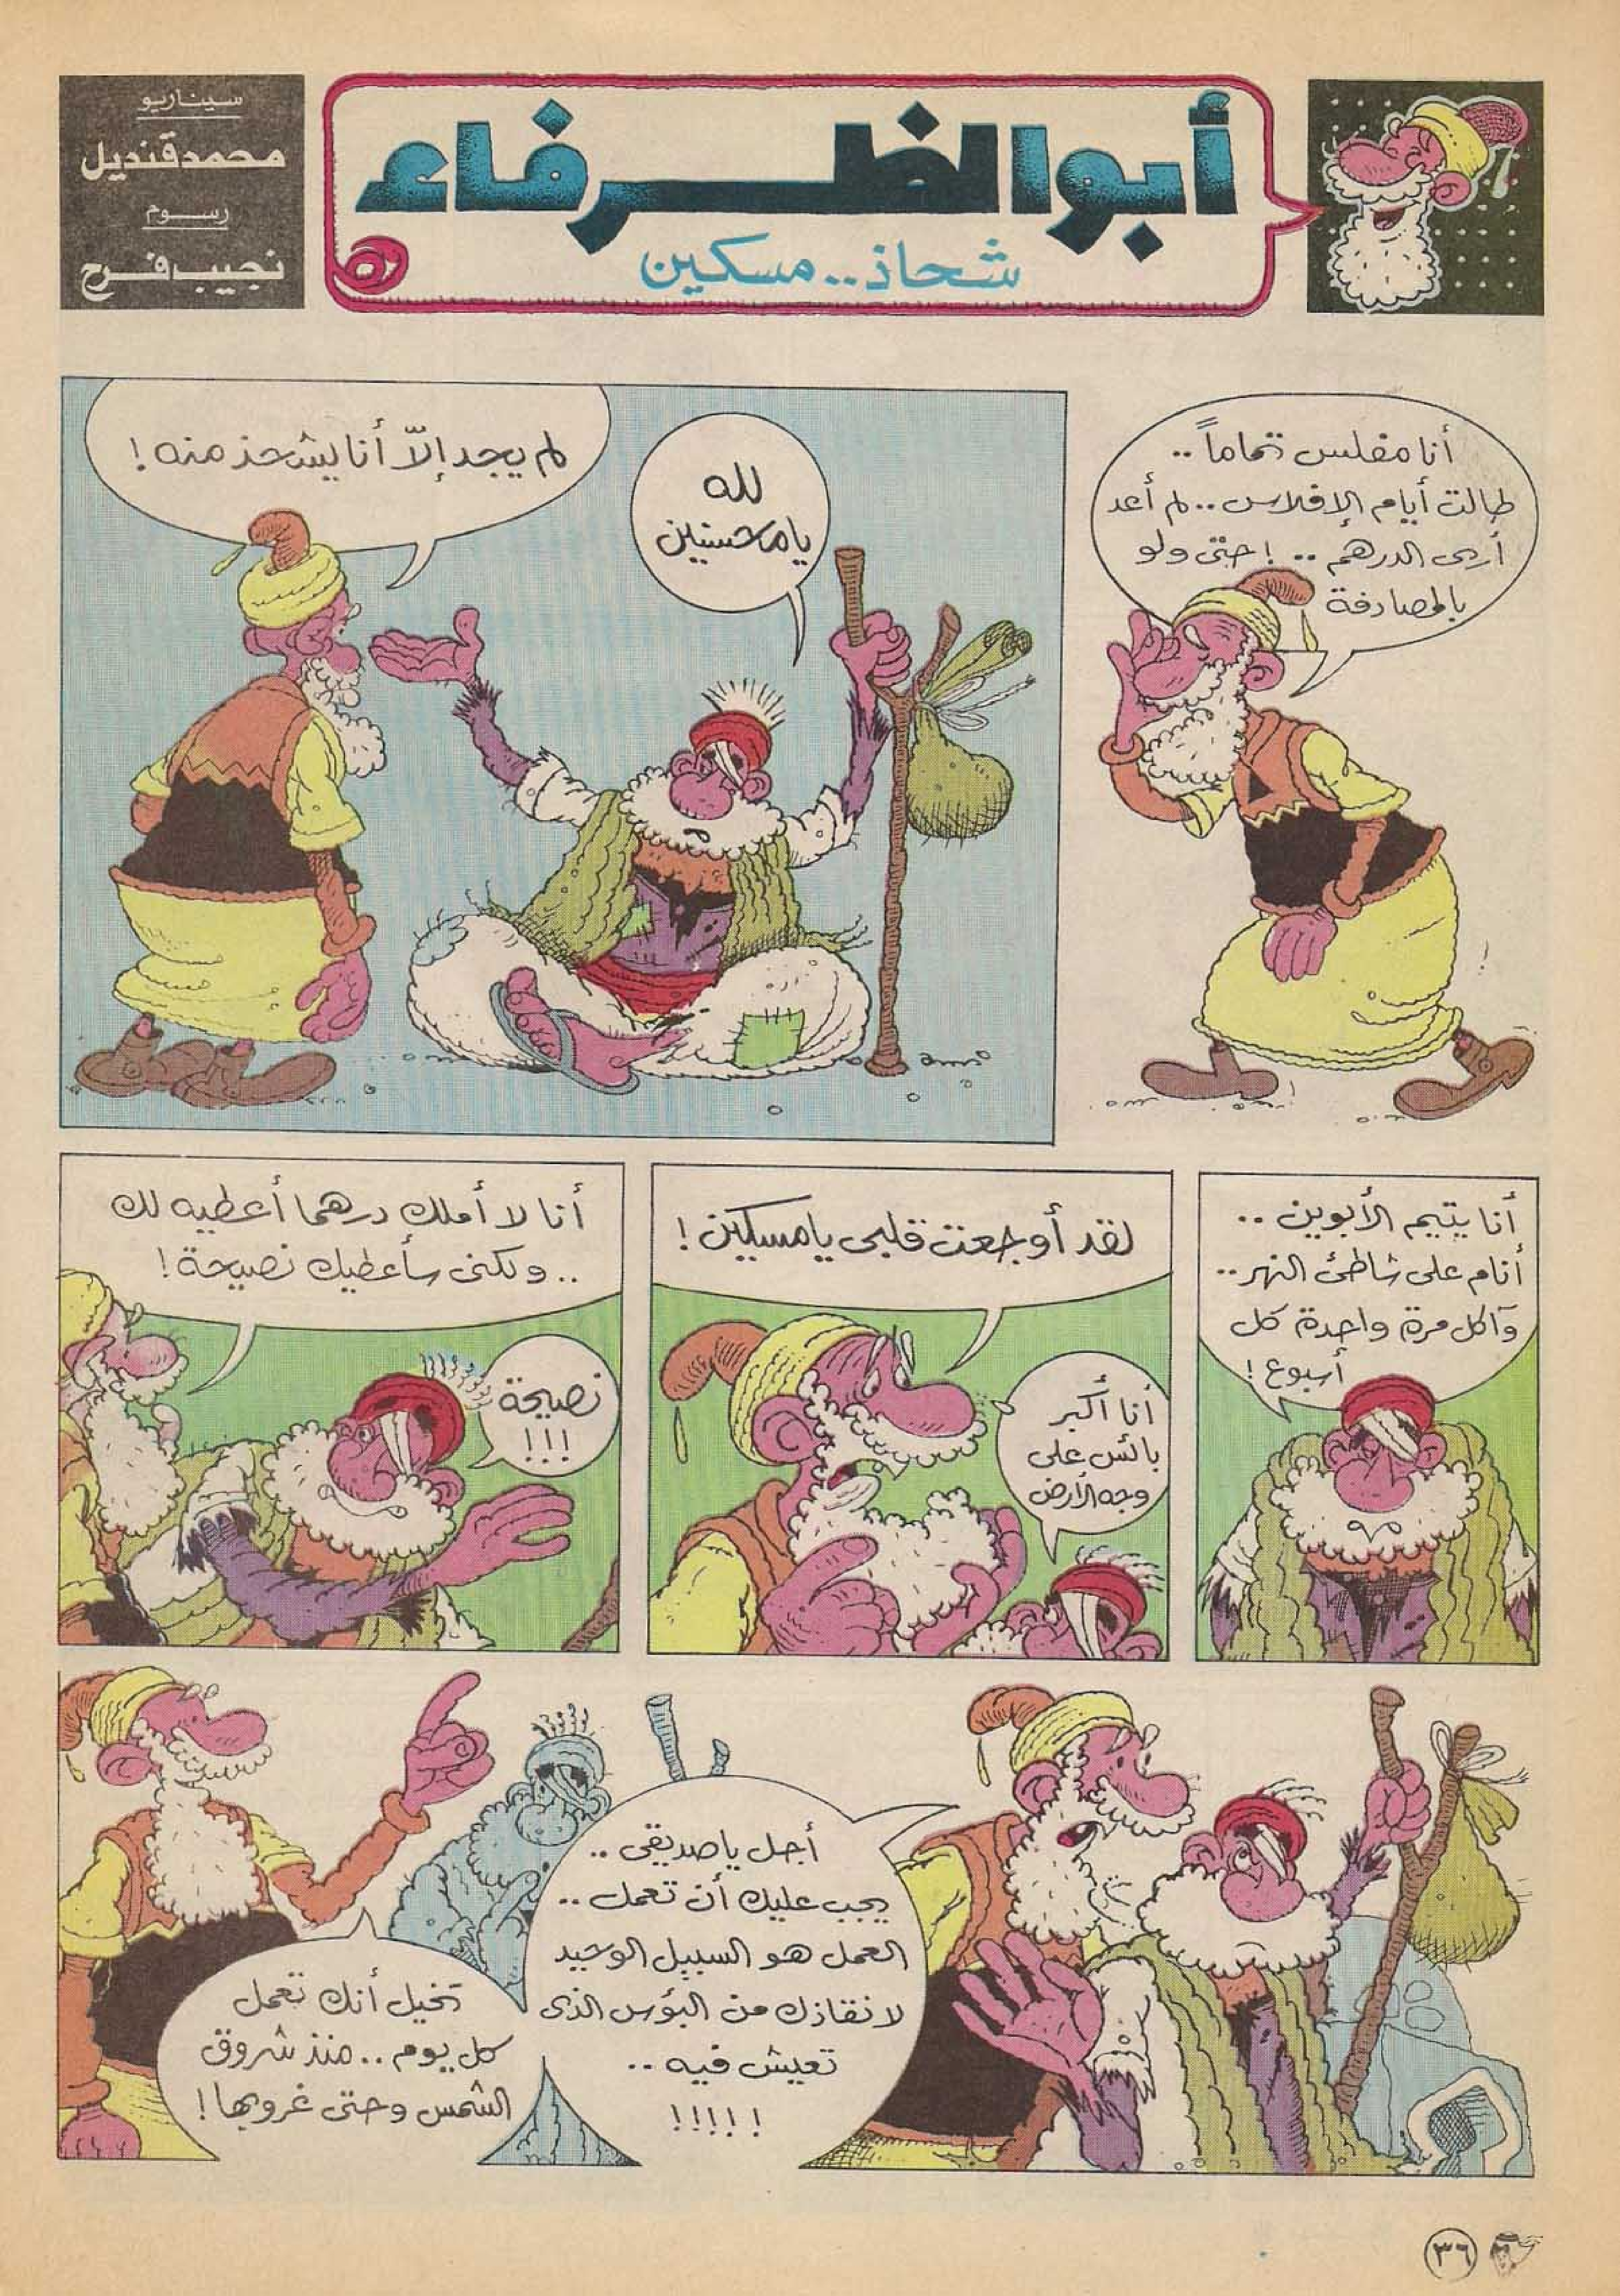 أبو الظرفاء
شحاذ.. مسكين
سيناريو
محمد قنديل
رسوم
نجيب فرح
أنا مفلس تماماً..
طالت أيام الإفلاس.. لم أعد
أرى الدرهم.. ! حتى ولو
بالمصادفة
لله
يا محسنين
لم يجد إلّا أنا ليشحذ منه !
أنا يتيم الأبوين ..
أنام على شاطئ النهر..
وآكل مرة واحدة كل
أسبوع !
أنا أكبر
بائس على
وجه الأرض
لقد أوجعت قلبي يا مسكين !
أنا لا أملك درهما أعطيه لك
.. ولكنى سأعطيك نصيحة !
نصيحة
!!!
أجل يا صديقى ..
يجب عليك أن تعمل ..
العمل هو السبيل الوحيد
لانقاذك من البؤس الذى
تعيش فيه ..
!!!!!
تخيل أنك تعمل
كل يوم .. منذ شروق
الشمس وحتى غروبها !
٣٦